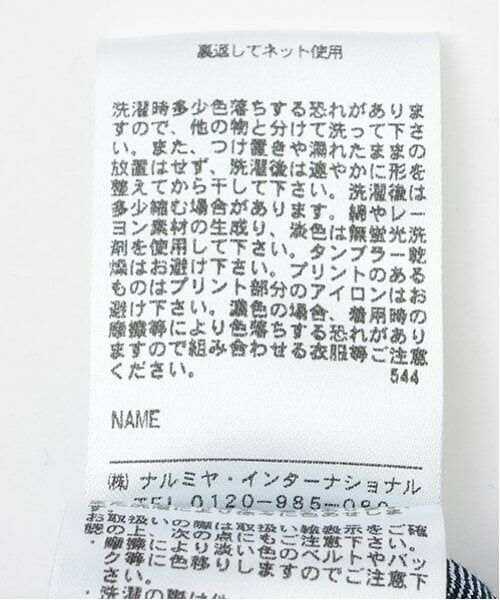 裏返してネット使用
洗濯時多少色落ちする恐れがありま
すので、他の物と分けて洗って下さ
い。また、つけ置きや濡れたままの
放置はせず、洗濯後は速やかに形を
整えてから干して下さい。洗濯後は
多少縮む場合があります。綿やレー
ヨン素材の生成り、淡色は無蛍光洗
剤を使用して下さい。タンブラー乾
燥はお避け下さい。プリントのある
ものはプリント部分のアイロンはお
避け下さい。濃色の場合、着用時の
摩擦等により色落ちする恐れがあり
ますので組み合わせる衣服等ご注意
ください。 544
NAME
(株) ナルミヤ・インターナショナル
TEL 0120-985-080
お取扱いの際は取扱い絵表示をご確
の上、次の点にもご注意下さい。
・摩擦により淡い色のベルトやバッ
グ等に色移りしますのでご注意下
さい。
・洗濯の際は他